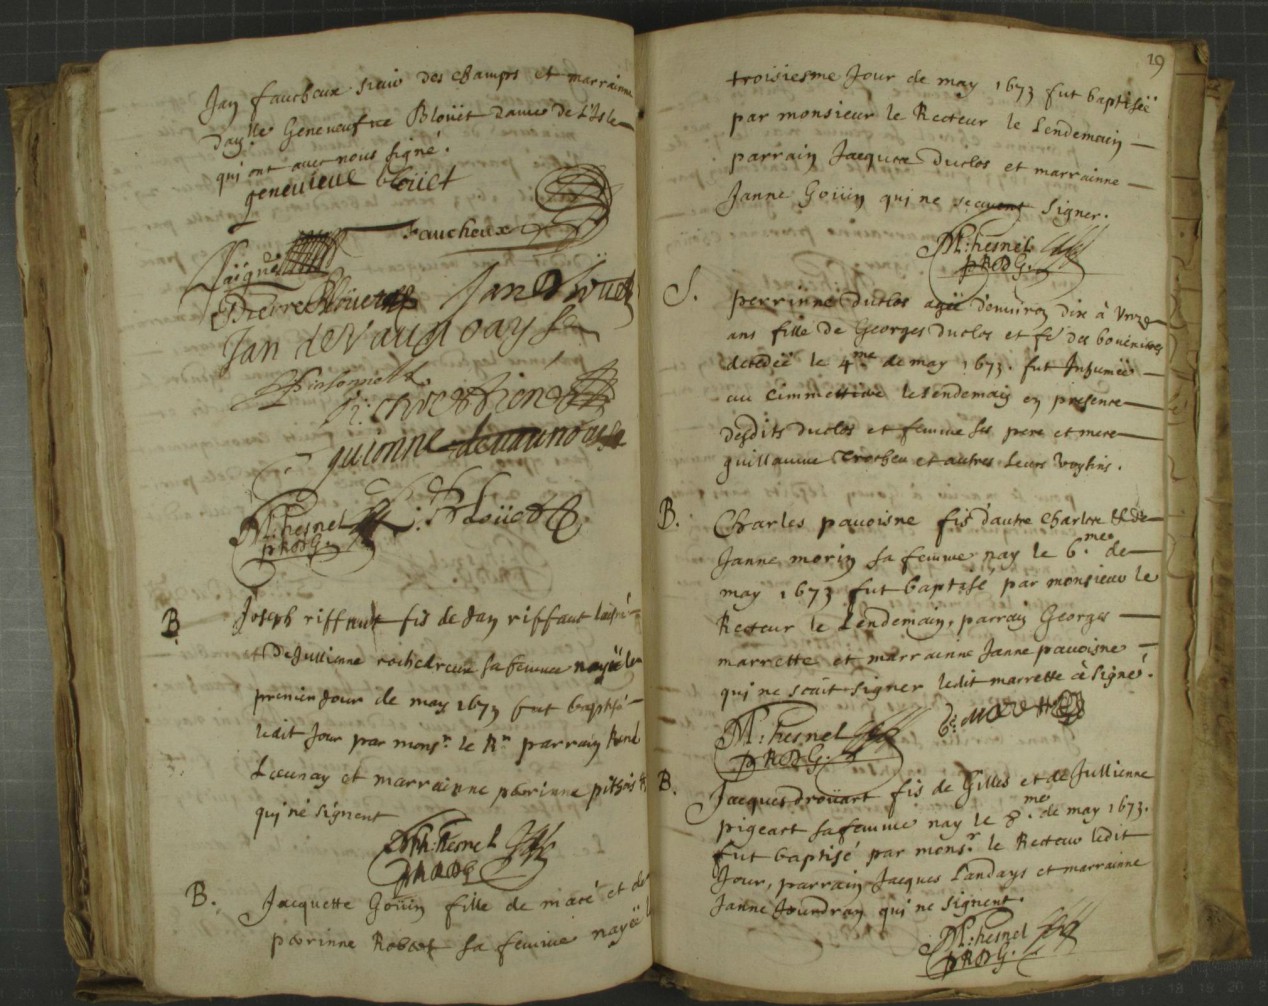 Jan faucheux sieur des champs et marrainne
Dam.lle Geneneufve Bloüet Dame de L'Isle
qui ont avec nous signé.
genevieve bloüet
Faucheux
Pierre Bloüet
Jan de Vaunoay
guionne de vaunoay
M: hesnel
PRDG.
B. Joseph riffault fis de Jan riffaut
et de Jullienne sa femme nay le
premier Jour de may 1673 fut baptisé
ledit Jour par mons.r le R.r parrain René
Launay et marrainne perrinne pithois
qui ne signent
M: hesnel
PRDG
B. Jacquette Goüin fille de macé et de
perrinne Robert sa femme nayë
19
troisiesme Jour de may 1673 fut baptiséé
par monsieur le Recteur le Lendemain
parrain Jacques Duclos et marrainne
Janne Goüin qui ne scavent signer.
M: hesnel
PRDG.
S. perrinne Duclos ageë d'environ dix à Unze
ans fille de Georges Duclos et
decedeë le 4.me de may 1673. fut Inhumeë
au Cimmettiere le Lendemain en presence
desdits Duclos et femme ses pere et mere
guillaume et autres Leurs voysins.
B. Charles pavoisne fis d'autre Charles et de
Janne morin sa femme nay le 6.me de
may 1673 fut baptisé par monsieur le
Recteur le Lendemain, parrain Georges
marrette et marrainne Janne pavoisne
qui ne scait signer ledit marrette à signé.
M: hesnel
PRDG.
B. Jacques droüart fis de Gilles et de Jullienne
pigeart sa femme nay le 8.me de may 1673.
fut baptisé par mons.r le Recteur ledit
Jour, parrain Jacques Landays et marrainne
Janne Jourdran qui ne signent.
M: hesnel
PRDG.